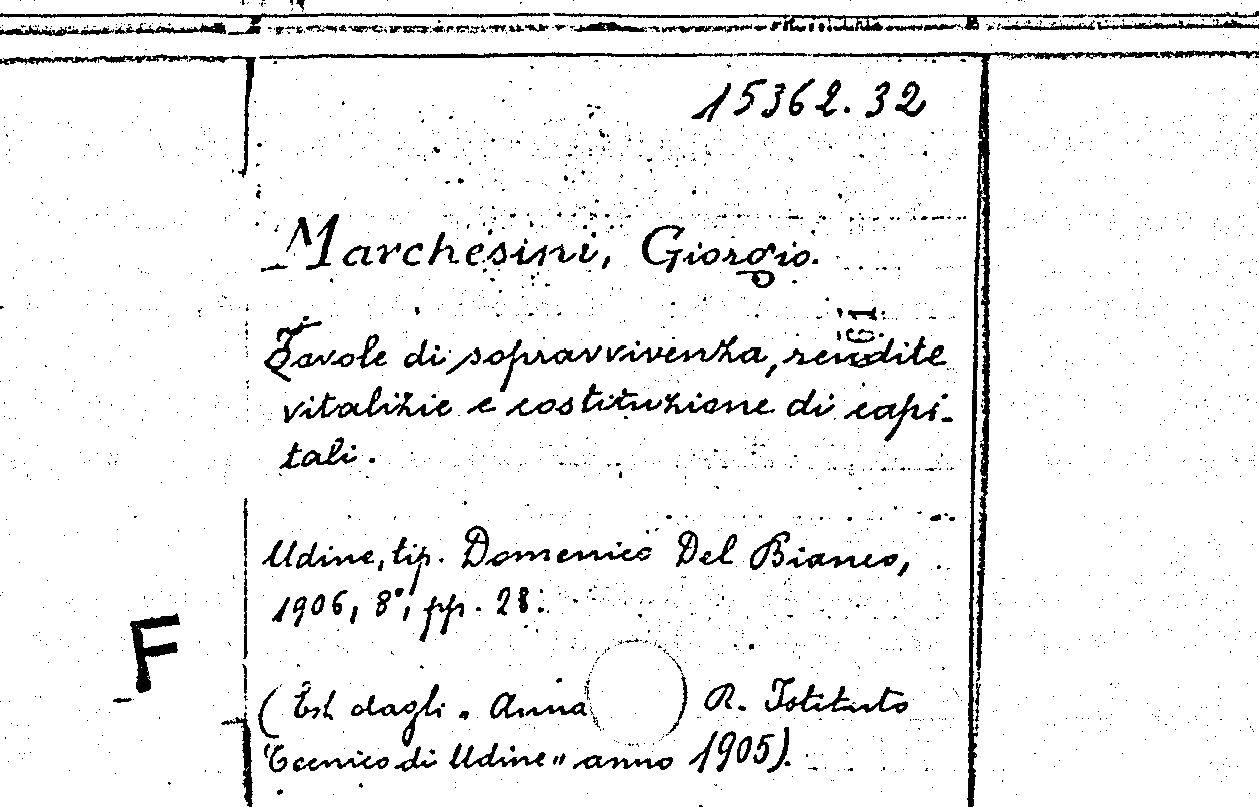 15362.32
Marchesini, Giorgio.
61
Tavole di sopravvivenza, rendite
vitalizie e costituzione di capi-
tali.
Udine, tip. Domenico Del Bianco,
1906, 8°, pp. 28.
F
(Est. dagli "Anna R. Istituto
Tecnico di Udine" anno 1905).